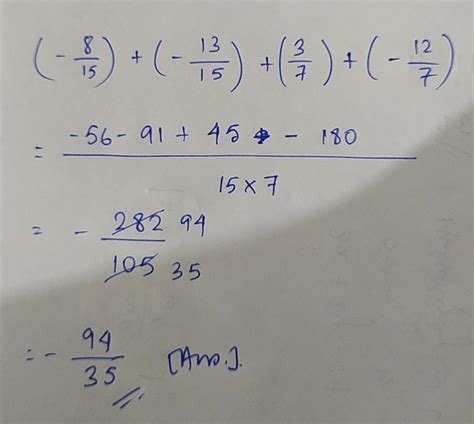 (- 8/15) + (- 13/15) + (3/7) + (- 12/7)
= -56 - 91 + 45 - 180 / 15 × 7
= - 282 94 / 105 35
= - 94/35 [Ans.].